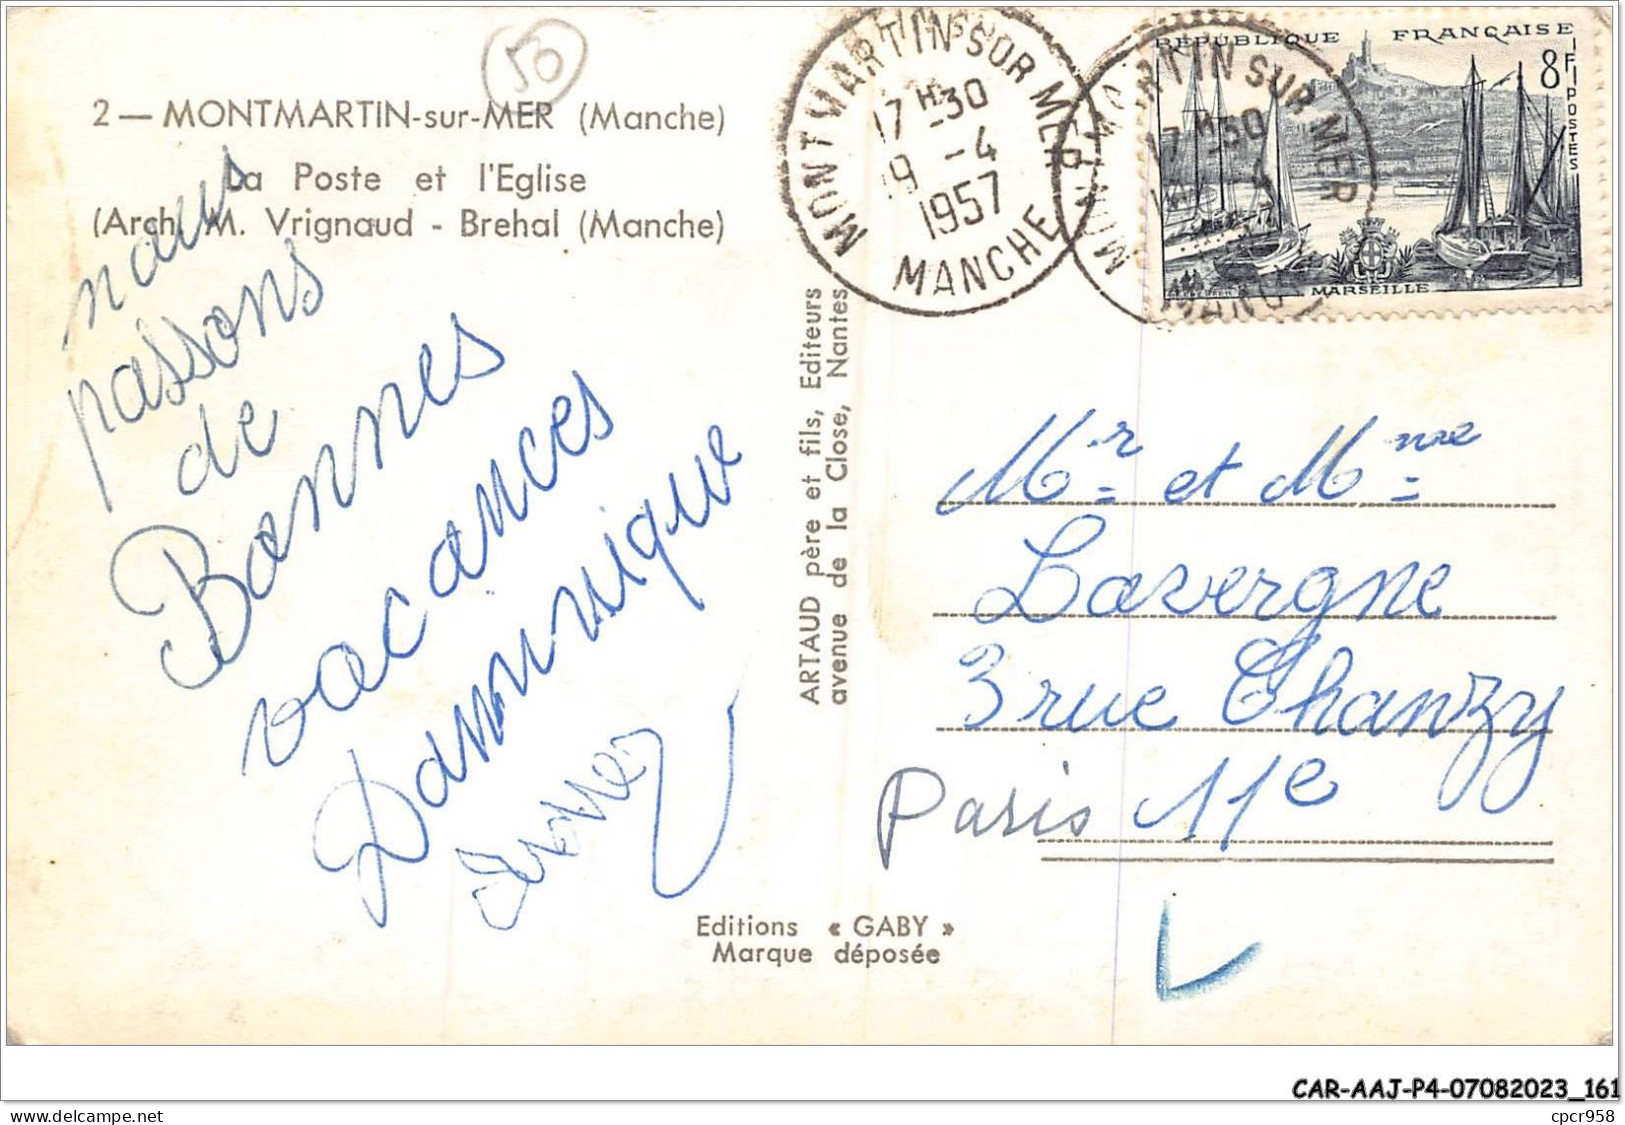 50
2 — MONTMARTIN-sur-MER (Manche)
La Poste et l'Eglise
(Arch. M. Vrignaud - Brehal (Manche)
nous
passons
de
Bonnes
vacances
Dominique
ARTAUD père et fils, Editeurs
avenue de la Close, Nantes
Editions « GABY »
Marque déposée
MONTMARTIN SUR MER
17 H 30
19 - 4
1957
MANCHE
MONTMARTIN SUR MER
17 H 30
MANCHE
REPUBLIQUE FRANÇAISE
8F
POSTES
MARSEILLE
Mr et Mme
Lavergne
3 rue Chanzy
Paris 11e
CAR-AAJ-P4-07082023_161
www.delcampe.net
cpcr958